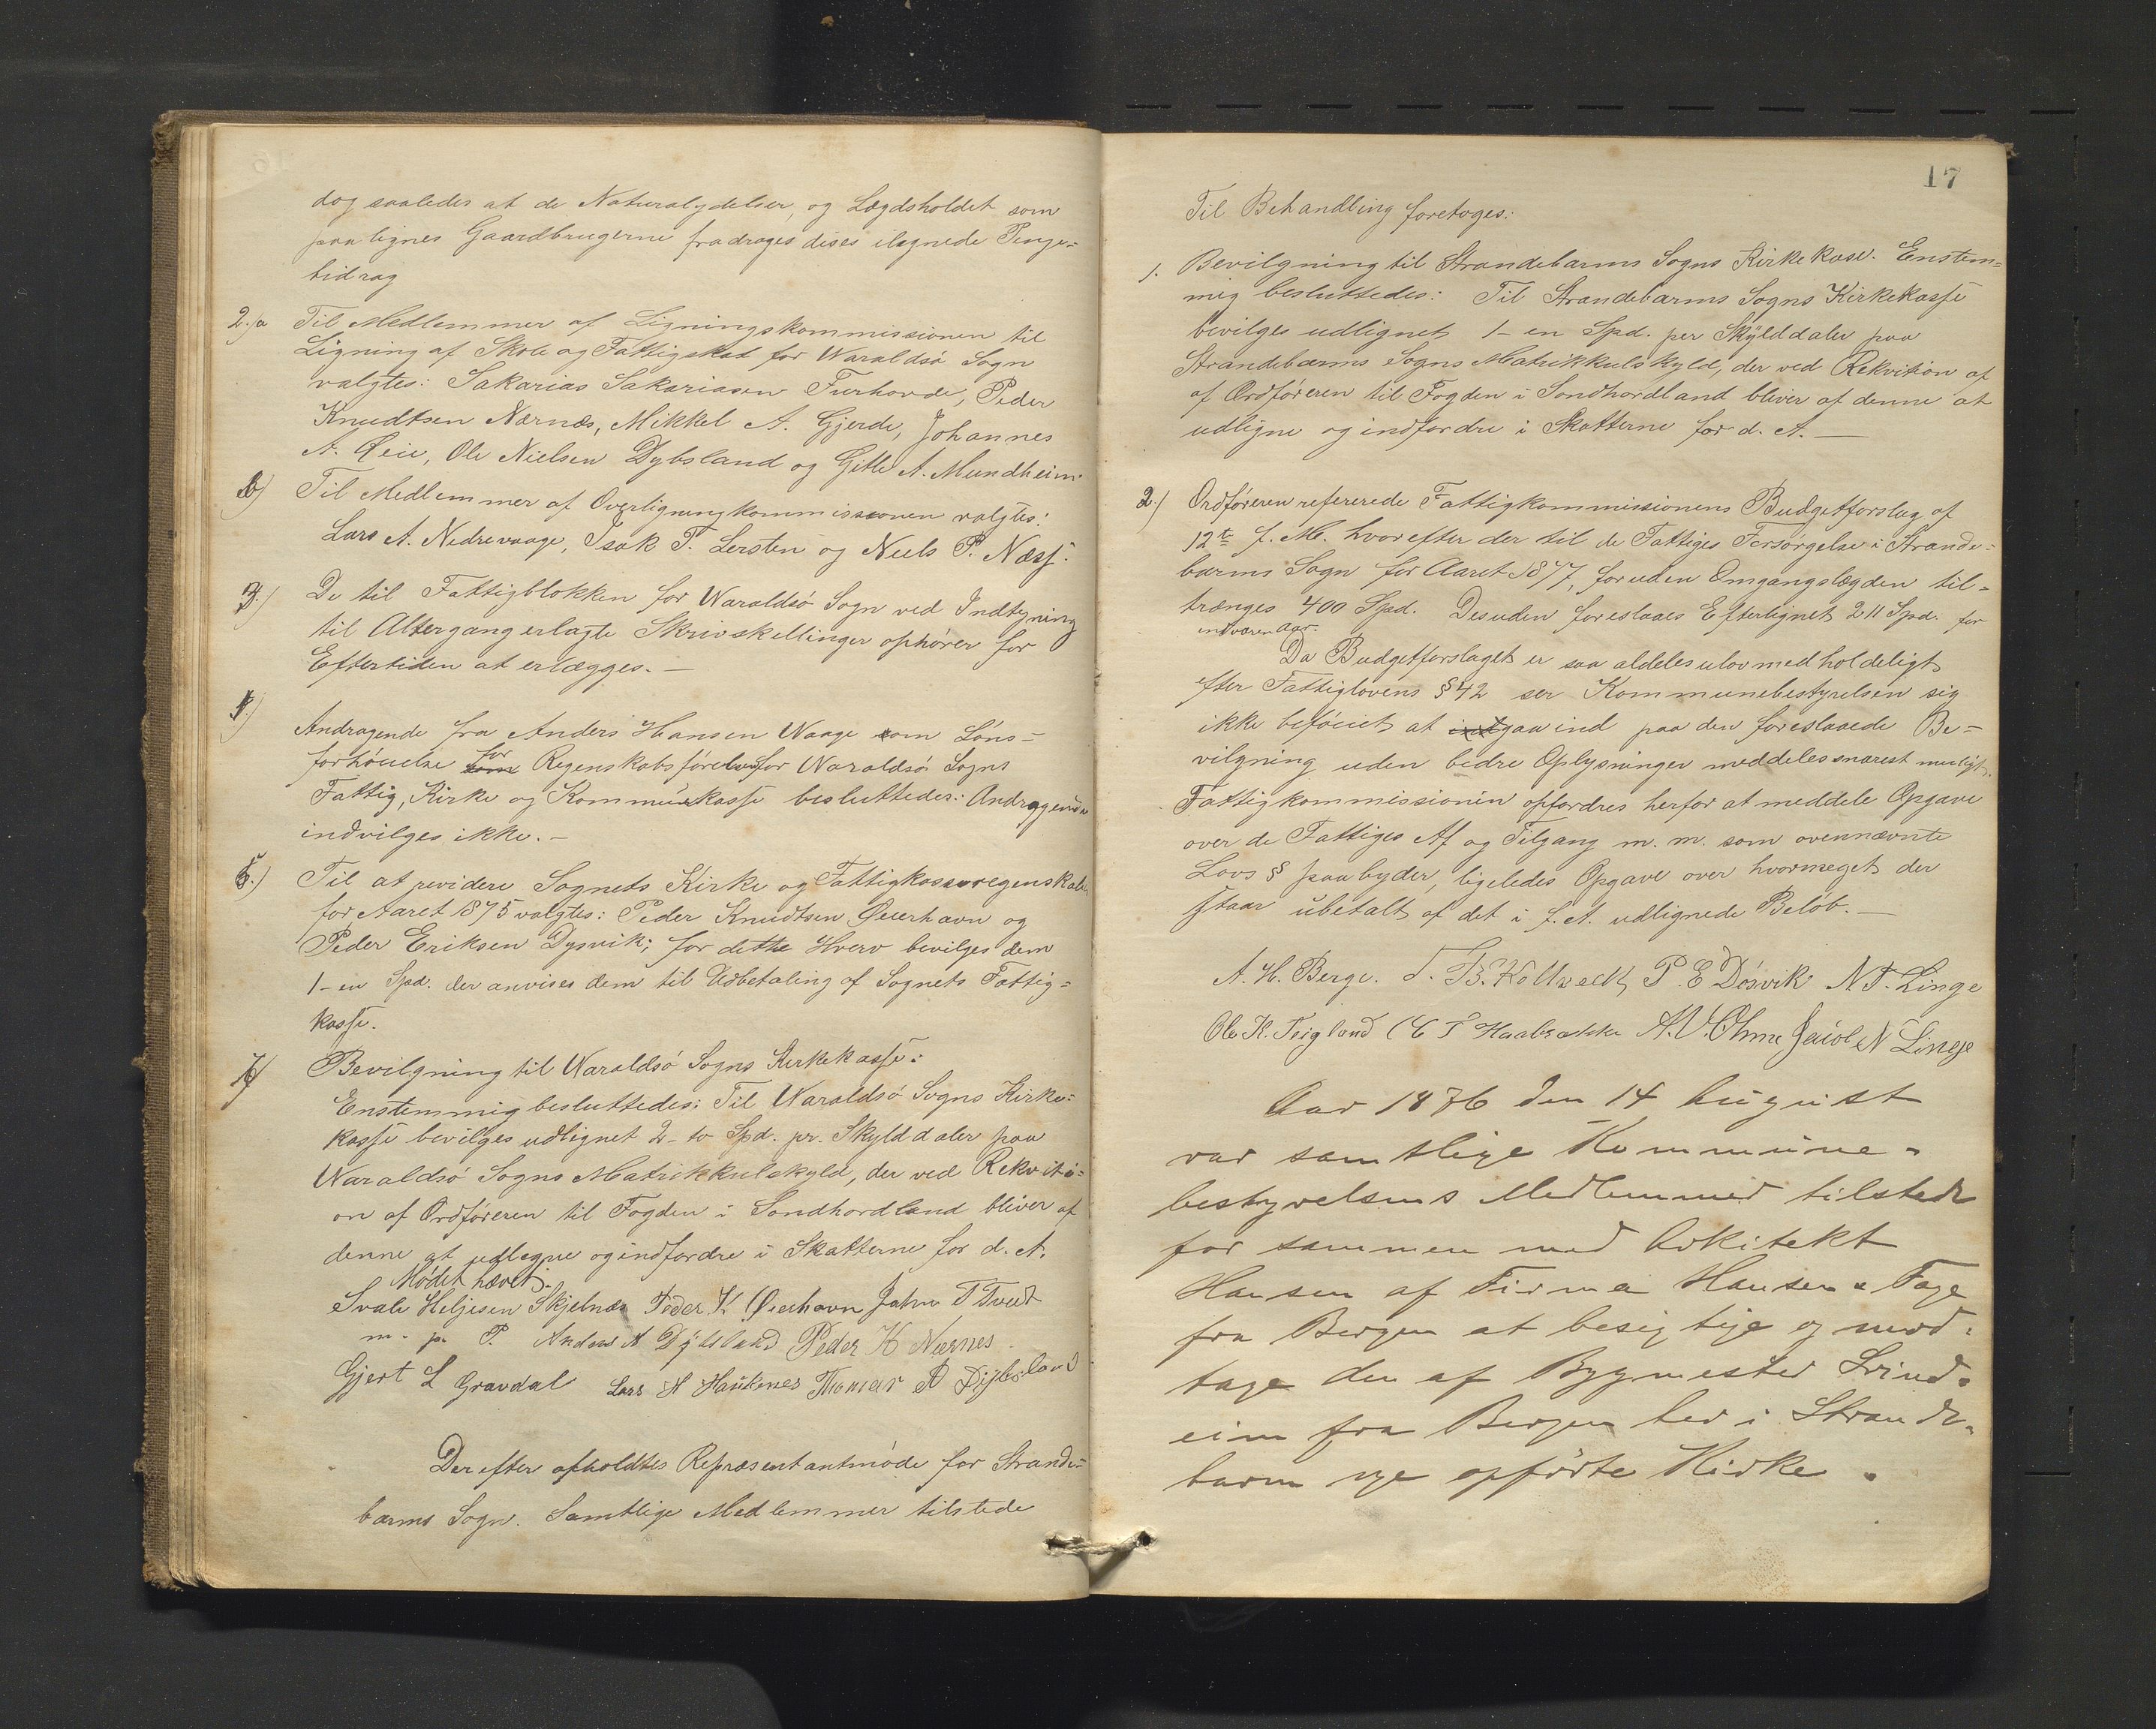 dog saaledes at de Naturalydelser, og Lægdsholdet som
paa lignes Gaardbrugerne fradrages disses ilegnede Penge-
bidrag
2./a Til Medlemmer af Ligningskommissionen til
Ligning af Skole og Fattigskat for Waraldsö Sogn
valgtes: Sakarias Sakariasen Furhovde, Peder
Knudtsen Nærnæs, Mikkel A. Gjerde, Johannes
A. Øeie, Ole Nielsen Dybsland og Gitle A. Mundheim
b) Til Medlemmer af Overligningkommissionen valgtes:
Lars A. Nedrevaage, Isak T. Lersten og Niels P. Næss.
3./ De til Fattigblokken for Waraldsö Sogn ved Indtegning
til Altergang erlagte Skrivskellinger ophörer for
Eftertiden at erlægges. —
4./
Andragende fra Anders Hansen Waage om Löns-
forhöielse for Regenskabsförelse for Waraldsö Sogns
Fattig, Kirke og Kommunekasse besluttedes: Andragende
indvilges ikke. —
5./ Til at revidere Sognets Kirke og Fattigkasseregenskab
for Aaret 1875 valgtes: Peder Knudtsen Øierhavn og
Peder Eriksen Dysvik; for dette Hverv bevilges dem
1- en Spd. der anvises dem til Udbetaling af Sognets Fattig=
kasse.
Bevilgning til Waraldsö Sogns Kirkekasse:
Enstemmig besluttedes: Til Waraldsö Sogns Kirke=
kasse bevilges udlignet 2- to Spd. pr. Skylddaler paa
Waraldsö Sogns Matrikkulskyld, der ved Rekvisi=
on af Ordföreren til Fogden i Sondhordland bliver af
denne at udlegne og indfordre i Skatterne for d. A.
Mödet hævet.
Svale Heljesen Skjelnæs Peder K Øierhavn John T Tveit
m. p. P. Anders A Dybsland Peder K Nærnes
Gjert L Gravdal Lars H Haukenes Thomas A Dybsland
Der efter afholdtes Repræsentantmöde for Strande=
barms Sogn. Samtlige Medlemmer tilstede
17
Til Behandling foretoges:
1. Bevilgning til Strandebarms Sogns Kirkekase. Enstem=
mig besluttedes: Til Strandebarms Sogns Kirkekasse
bevilges udlignet 1- en Spd. per Skylddaler paa
Strandebarms Sogns Matrikkulskyld, der ved Rekvition af
af Ordföreren til Fogden i Sondhordland bliver af denne at
udligne og indfordre i Skatterne for d. A. —
2./ Ordföreren refererede Fattigkommissionens Budgetforslag af
12te f. M. hvorefter der til de Fattiges Forsörgelse i Strande=
barms Sogn for Aaret 1877, foruden Omgangslægden til=
trænges 400 Spd. Desuden foreslaaes Efterlignet 211 Spd. for
indværen Aar.
Da Budgetforslaget er saa aldeles ulovmedholdeligt
efter Fattiglovens § 42 ser Kommunebestyrelsen sig
ikke beföiet at indgaa ind paa den foreslaaede Be=
vilgning uden bedre Oplysninger meddeles snarest muligt.
Fattigkommissionen opfordres herfor at meddele Opgave
over de Fattiges Af og Tilgang m. m. som ovennævnte
Lovs § paabyder, ligeledes Opgave over hvormeget der
staar ubetalt af det i f. A. udlignede Belöb. —
A. H. Berge. T. B. Koltvedt P. E Dösvik N T. Linge
Ole K. Teigland C T Haabrekke A. V. Ohme Jacob N Linge
Aar 1876 den 14 August
var samtlige Kommune=
bestyrelsens Medlemmer tilstede
for sammen med Arkitekt
Hansen af Firma Hansen & Fage
fra Bergen at besigtige og mod=
tage den af Bygmester
fra Bergen her i Strande=
barm nye opförte Kirke.